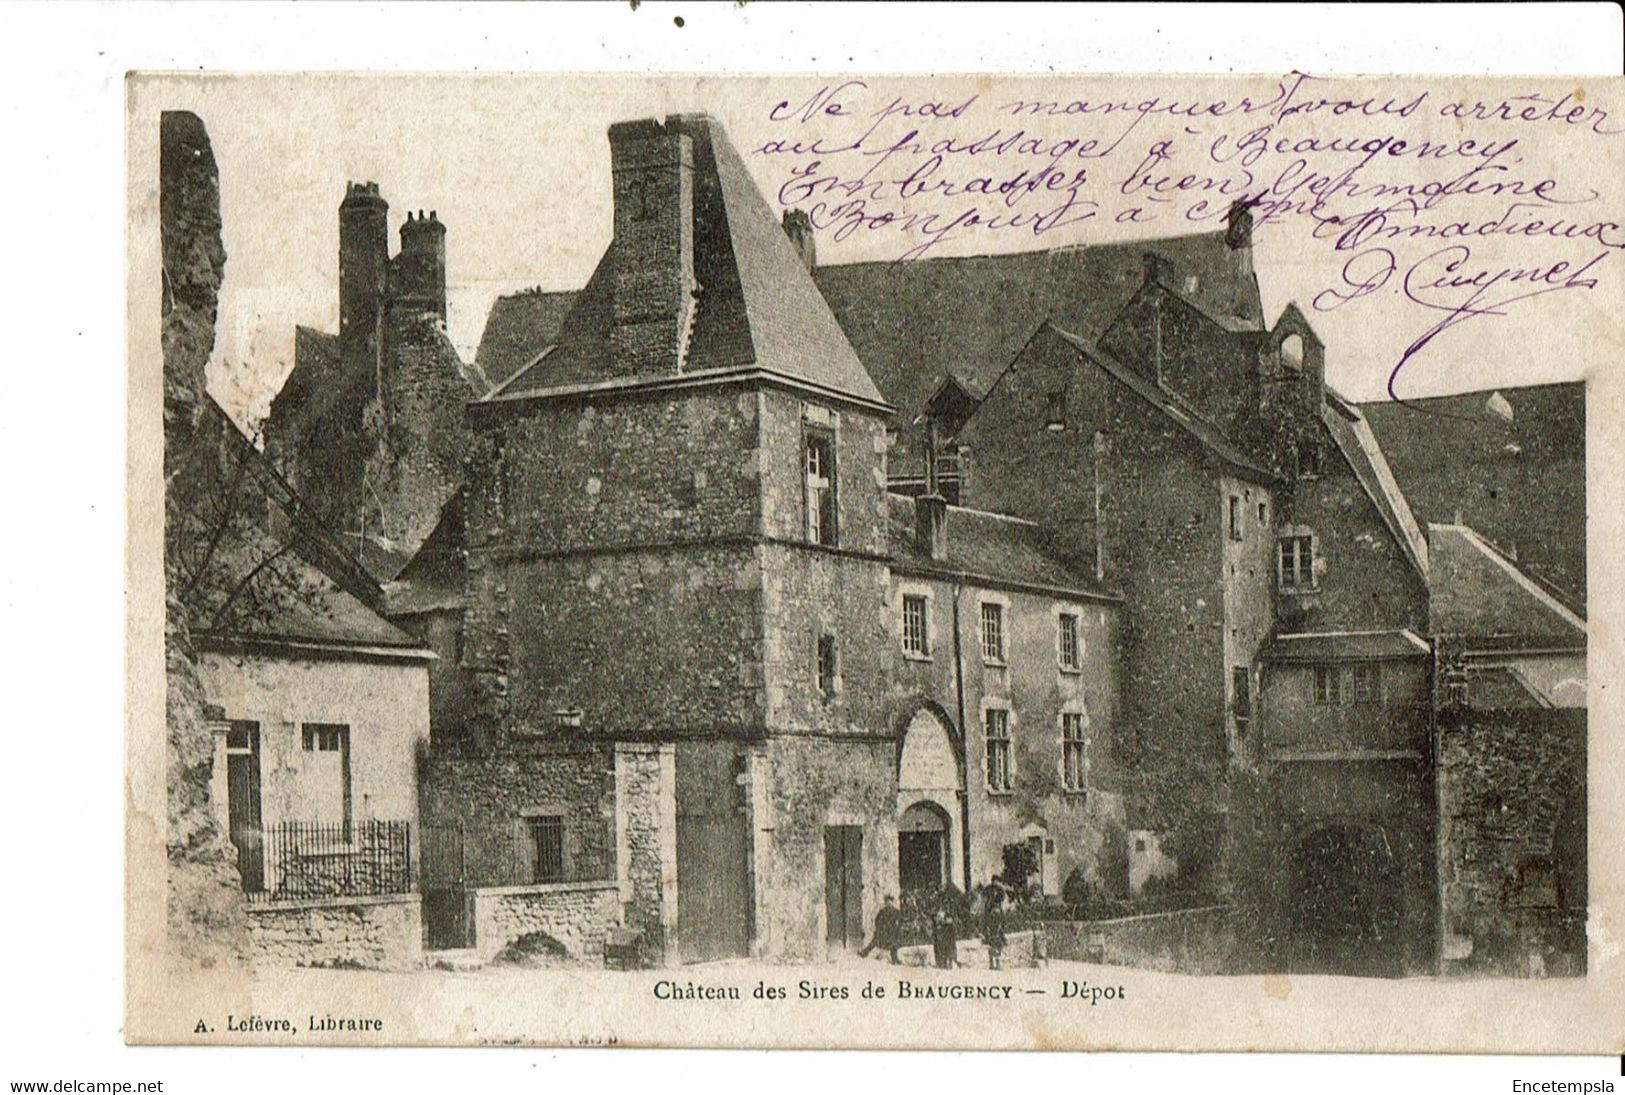 Ne pas manquer vous arrêter
au passage à Beaugency.
Embrassez bien Germaine
Bonjour à Mme Amadieux
D. Cuynet
Château des Sires de BEAUGENCY — Dépot
A. Lefèvre, Libraire
www.delcampe.net
Encetempsla